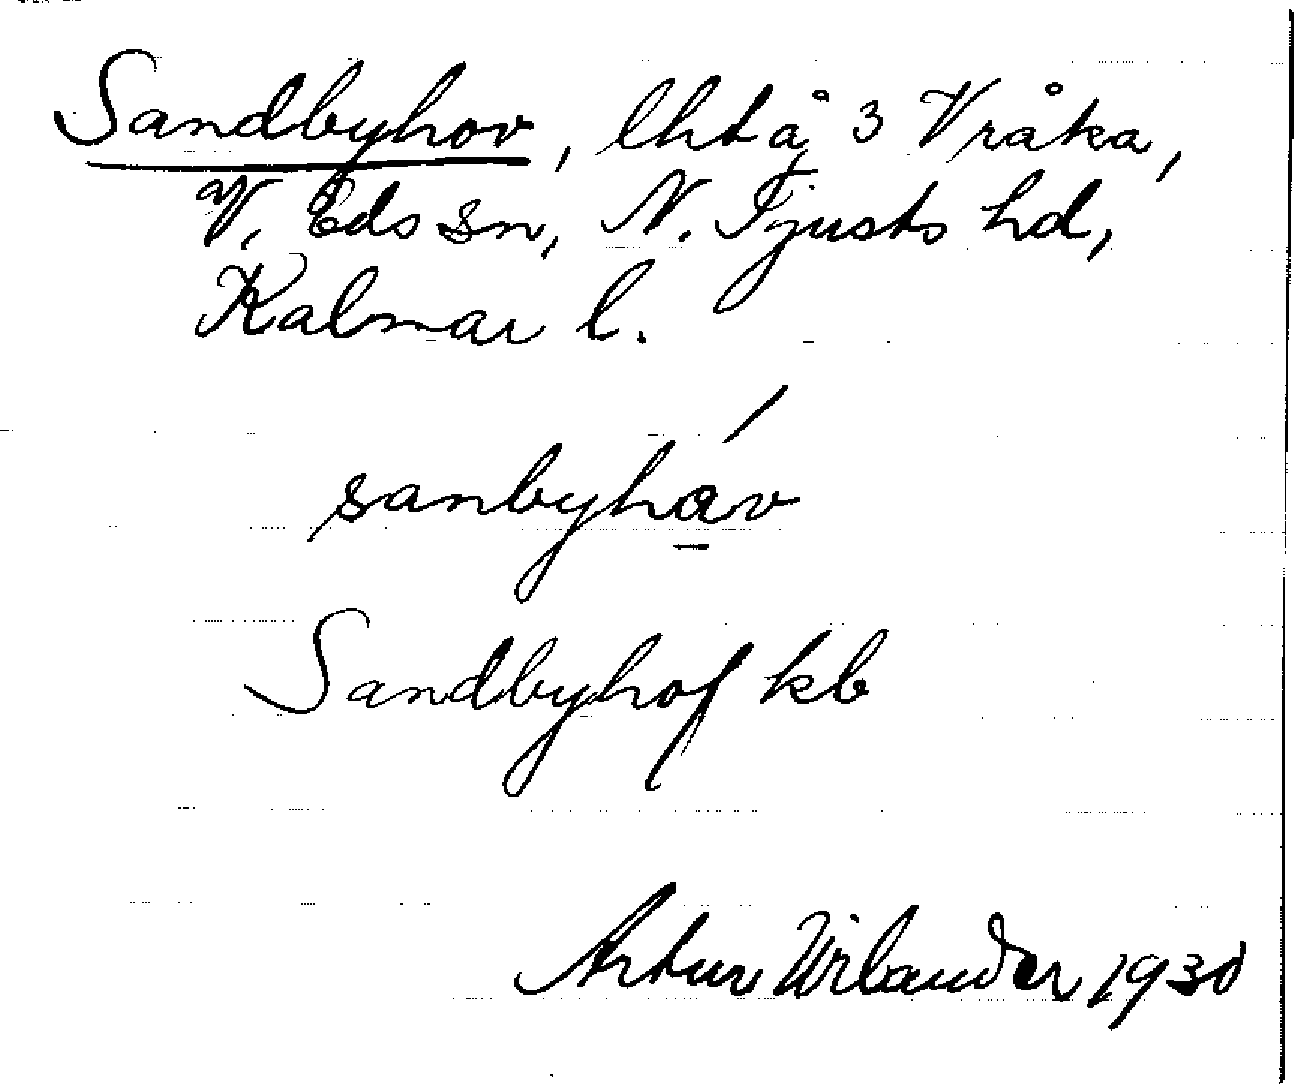 Sandbyhov, lht å 3 Vråka,
V. Eds sn, N. Tjusts hd,
Kalmar l.
sanbyháv
Sandbyhof kb
Artur Wilander 1930